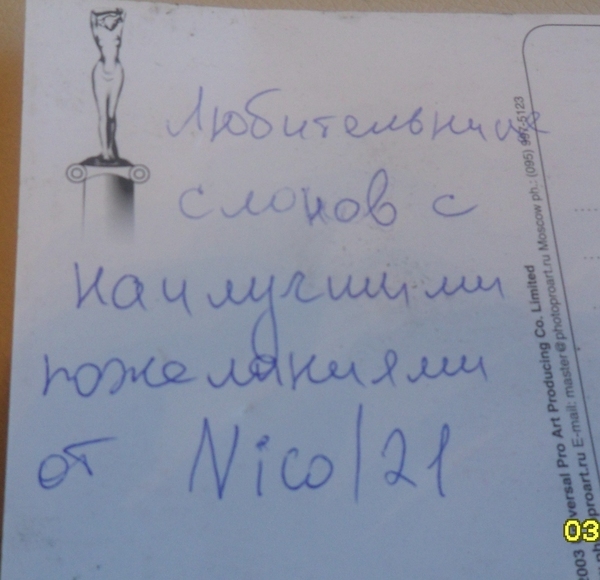 Любительнице
слонов с
наилучшими
пожеланиями
от Nico|21
2003 Universal Pro Art Producing Co. Limited
photoproart.ru E-mail: master@photoproart.ru Moscow ph.: (095) 997-5123
03